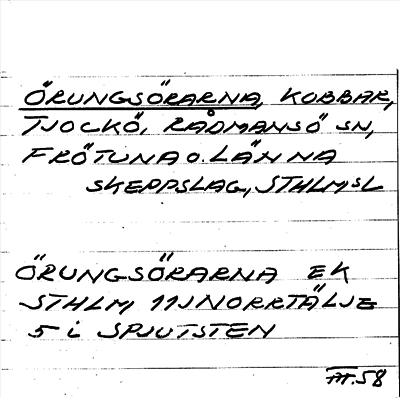 ÖRUNGSÖRARNA, KOBBAR,
TJOCKÖ, RÅDMANSÖ SN,
FRÖTUNA O. LÄNNA
SKEPPSLAG, STHLMS L
ÖRUNGSÖRARNA EK
STHLM 11J NORRTÄLJE
5 i SPJUTSTEN
58